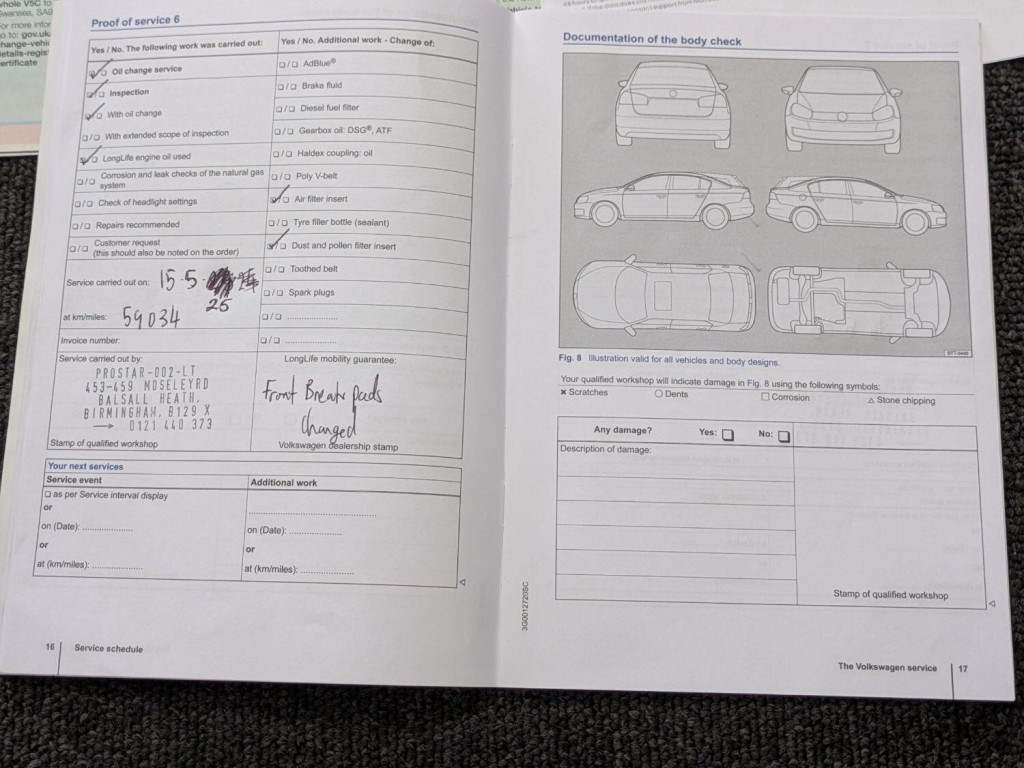 whole V5C to
Swansea, SA9
For more infor
go to: gov.uk
change-vehi
details-regis
certificate
Proof of service 6
Yes / No. The following work was carried out:
Oil change service
Inspection
With oil change
With extended scope of inspection
LongLife engine oil used
Corrosion and leak checks of the natural gas
system
Check of headlight settings
Repairs recommended
Customer request
(this should also be noted on the order)
Service carried out on: 15.5
25
at km/miles: 59034
Invoice number:
Service carried out by:
PROSTAR-002-LT
453-459 MOSELEYRD
BALSALL HEATH,
BIRMINGHAM, B129 X
→ 0121 440 373
Stamp of qualified workshop
Yes / No. Additional work - Change of:
AdBlue®
Brake fluid
Diesel fuel filter
Gearbox oil: DSG®, ATF
Haldex coupling: oil
Poly V-belt
Air filter insert
Tyre filler bottle (sealant)
Dust and pollen filter insert
Toothed belt
Spark plugs
LongLife mobility guarantee:
Front Break Pads
Changed
Volkswagen dealership stamp
Your next services
Service event
as per Service interval display
or
on (Date):
or
at (km/miles):
Additional work
on (Date):
or
at (km/miles):
16 Service schedule
Documentation of the body check
Fig. 8 Illustration valid for all vehicles and body designs.
Your qualified workshop will indicate damage in Fig. 8 using the following symbols:
× Scratches ○ Dents □ Corrosion △ Stone chipping
Any damage? Yes: □ No: □
Description of damage:
Stamp of qualified workshop
3G0012720SC
The Volkswagen service 17